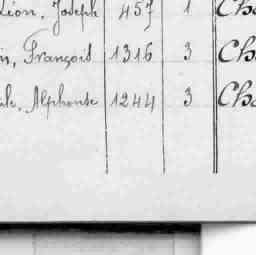 Léon, Joseph 457 1 Cha
François 1316 3 Cha
Alphonse 1244 3 Cha